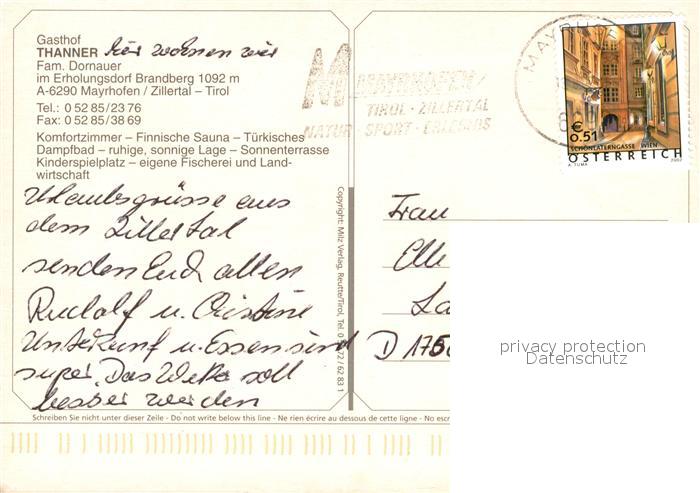 Gasthof
THANNER hier wohnen wir
Fam. Dornauer
im Erholungsdorf Brandberg 1092 m
A-6290 Mayrhofen / Zillertal – Tirol
Tel.: 0 52 85 / 23 76
Fax: 0 52 85 / 38 69
Komfortzimmer – Finnische Sauna – Türkisches
Dampfbad – ruhige, sonnige Lage – Sonnenterrasse
Kinderspielplatz – eigene Fischerei und Land-
wirtschaft
Urlaubsgrüsse aus
dem Zillertal
senden Euch allen
Rudolf u. Cristine
Unterkunf u. Essen sind
super. Das Wetter soll
besser werden
Copyright: Milz Verlag, Reutte/Tirol, Tel. 0 72 / 62 83 1
MAYRHOFEN /
TIROL · ZILLERTAL
NATUR · SPORT · ERLEBNIS
MAYRHOFE
€
0,51
SCHÖNLATERNGASSE WIEN
ÖSTERREICH
A. TUMA 2002
Frau
D 175
privacy protection
Datenschutz
Schreiben Sie nicht unter dieser Zeile - Do not write below this line - Ne rien écrire au dessous de cette ligne - No esc